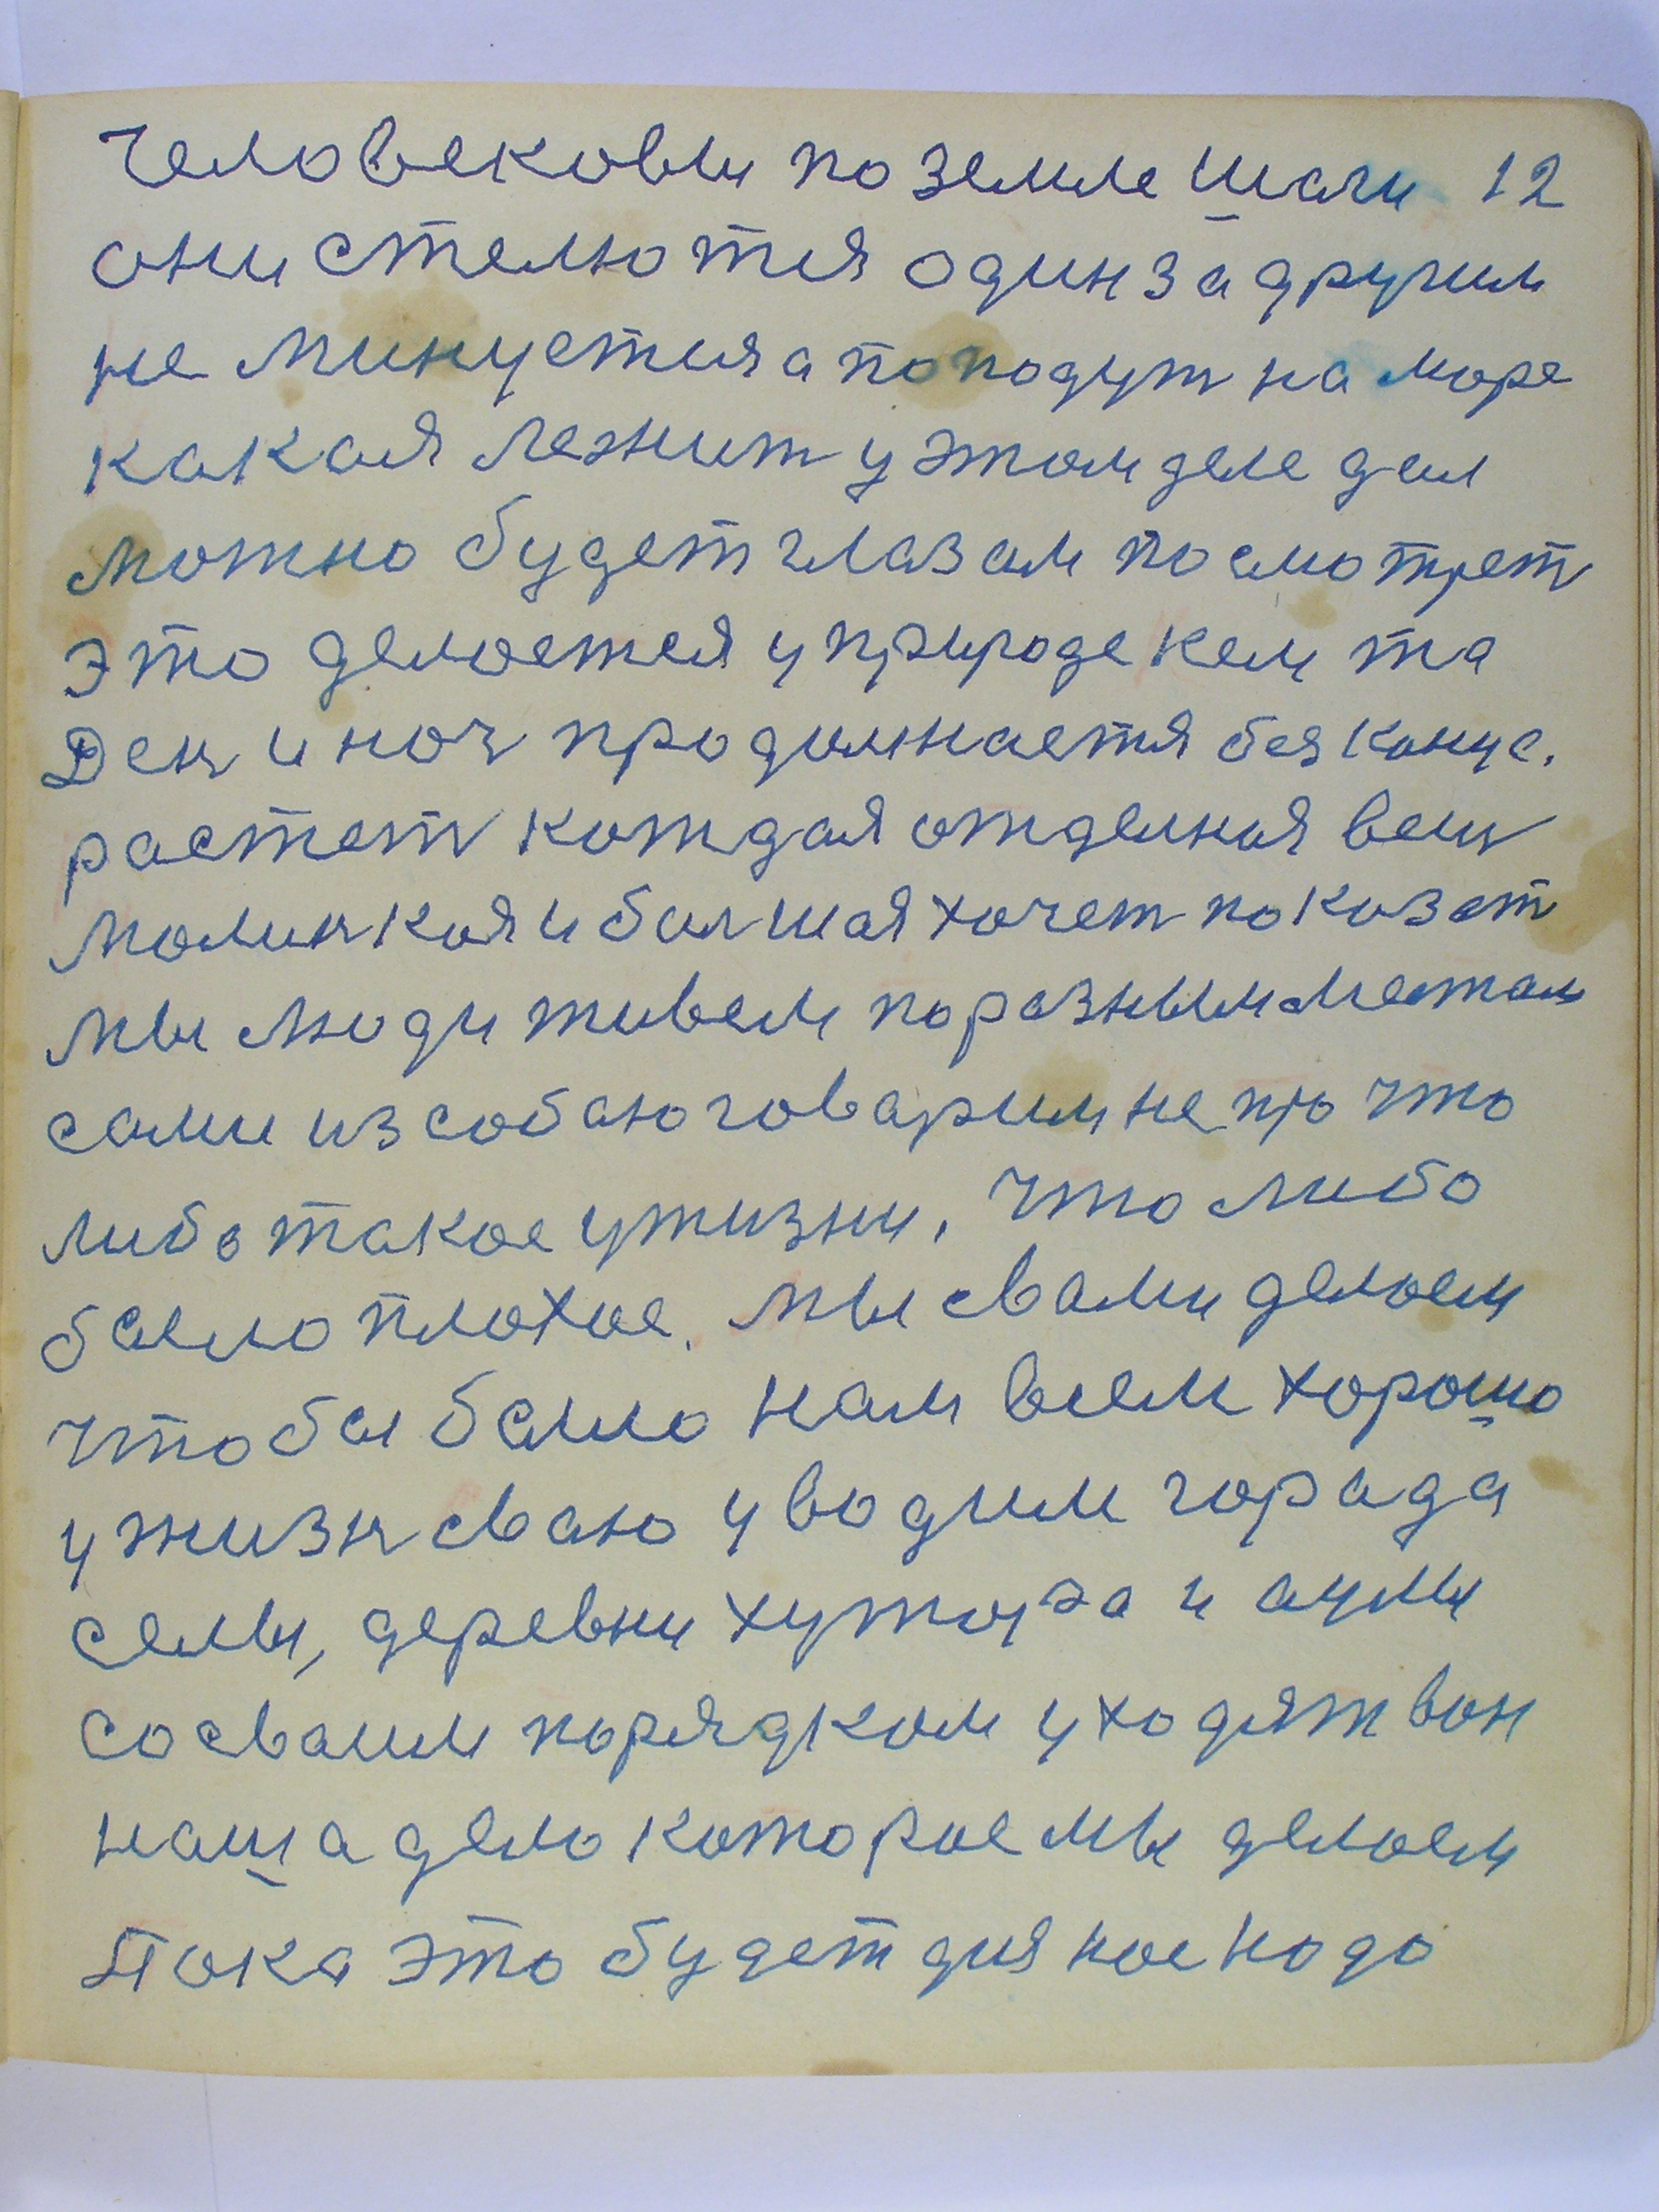 человековы по земле шаги 12
они стелются один за другим
не минустия а пoпoдут на море
какая лежит у этом деле дел
можно будет глазам посмотрет
это делоется у природе кем та
Ден и ноч продолжается без конце.
растет кождая отделная вещ
молинкая и болшая хочет показат
мы люди живем по разным местам
сами из собаю говарим не про что
либо такое у жизни, что либо
было плохое. мы с вами делоем
чтобы было нам всем хорошо
у жизн сваю уводим горада
селы, деревни хутора и аулы
со сваим порядком уходят вон
наша дело которое мы делоем
Пока это будет для нос надо